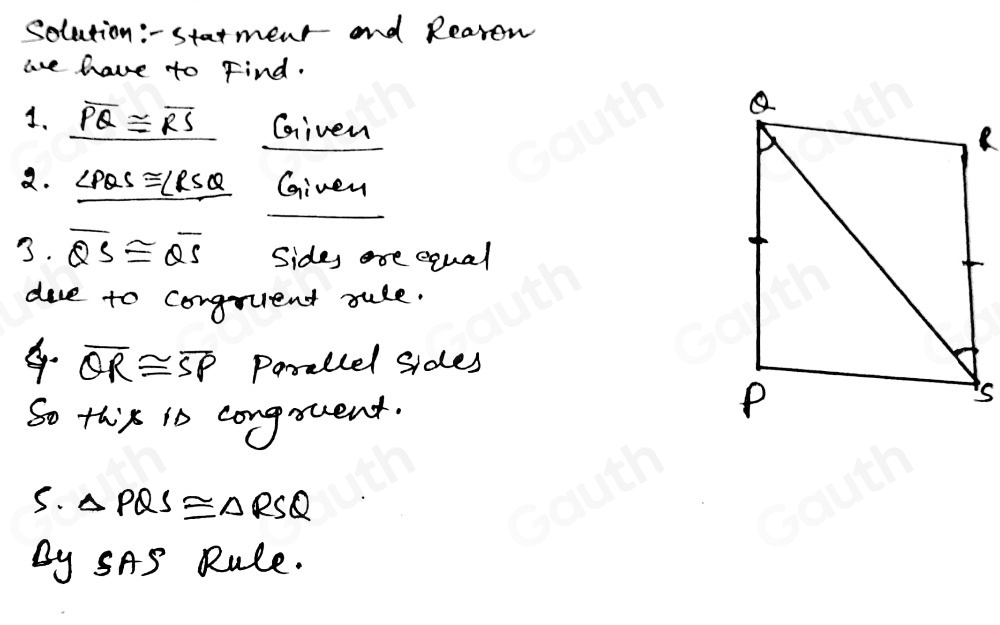 Solution:- Statment and Reason
we have to Find.
1. PQ ≅ RS Given
2. ∠PQS ≅ ∠RSQ Given
3. QS ≅ QS Sides are equal
due to congruent rule.
4. QR ≅ SP Parallel Sides
So this is congruent.
5. △ PQS ≅ △ RSQ
By SAS Rule.
Q
R
P
S
Gauth